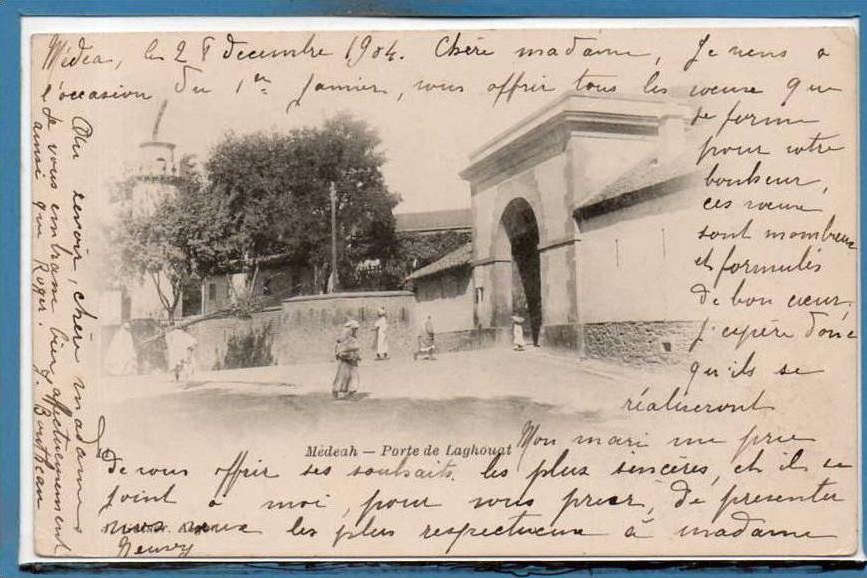 Médéa, le 28 decembre 1904. Chère madame, Je viens a
l'occasion du 1er Janvier, vous offrir tous les voeux que
je forme
pour votre
bonheur,
ces voeux
sont nombreux
et formulés
de bon coeur.
j'espère donc
qu'ils se
réaliseront
Médéah — Porte de Laghouat
Mon mari me prie
de vous offrir ses souhaits les plus sincères, et il se
joint à moi, pour vous prier, de présenter
nos voeux les plus respectueux à madame
Neuvy
Au revoir, chère madame
Je vous embrasse bien affectueusement
ainsi que Roger.